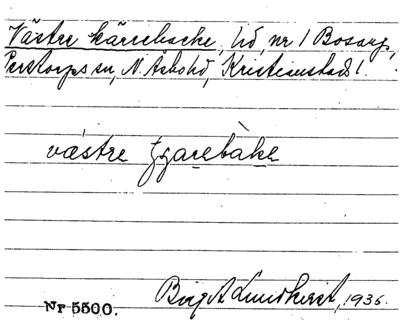 Västre kärrebacke, hd, nr 1 Bosarp,
Perstorps sn, N. Åsbo hd, Kristianstads l.
västre tjarebàke
Birgit Lundkvist, 1935.
Nr 5500.